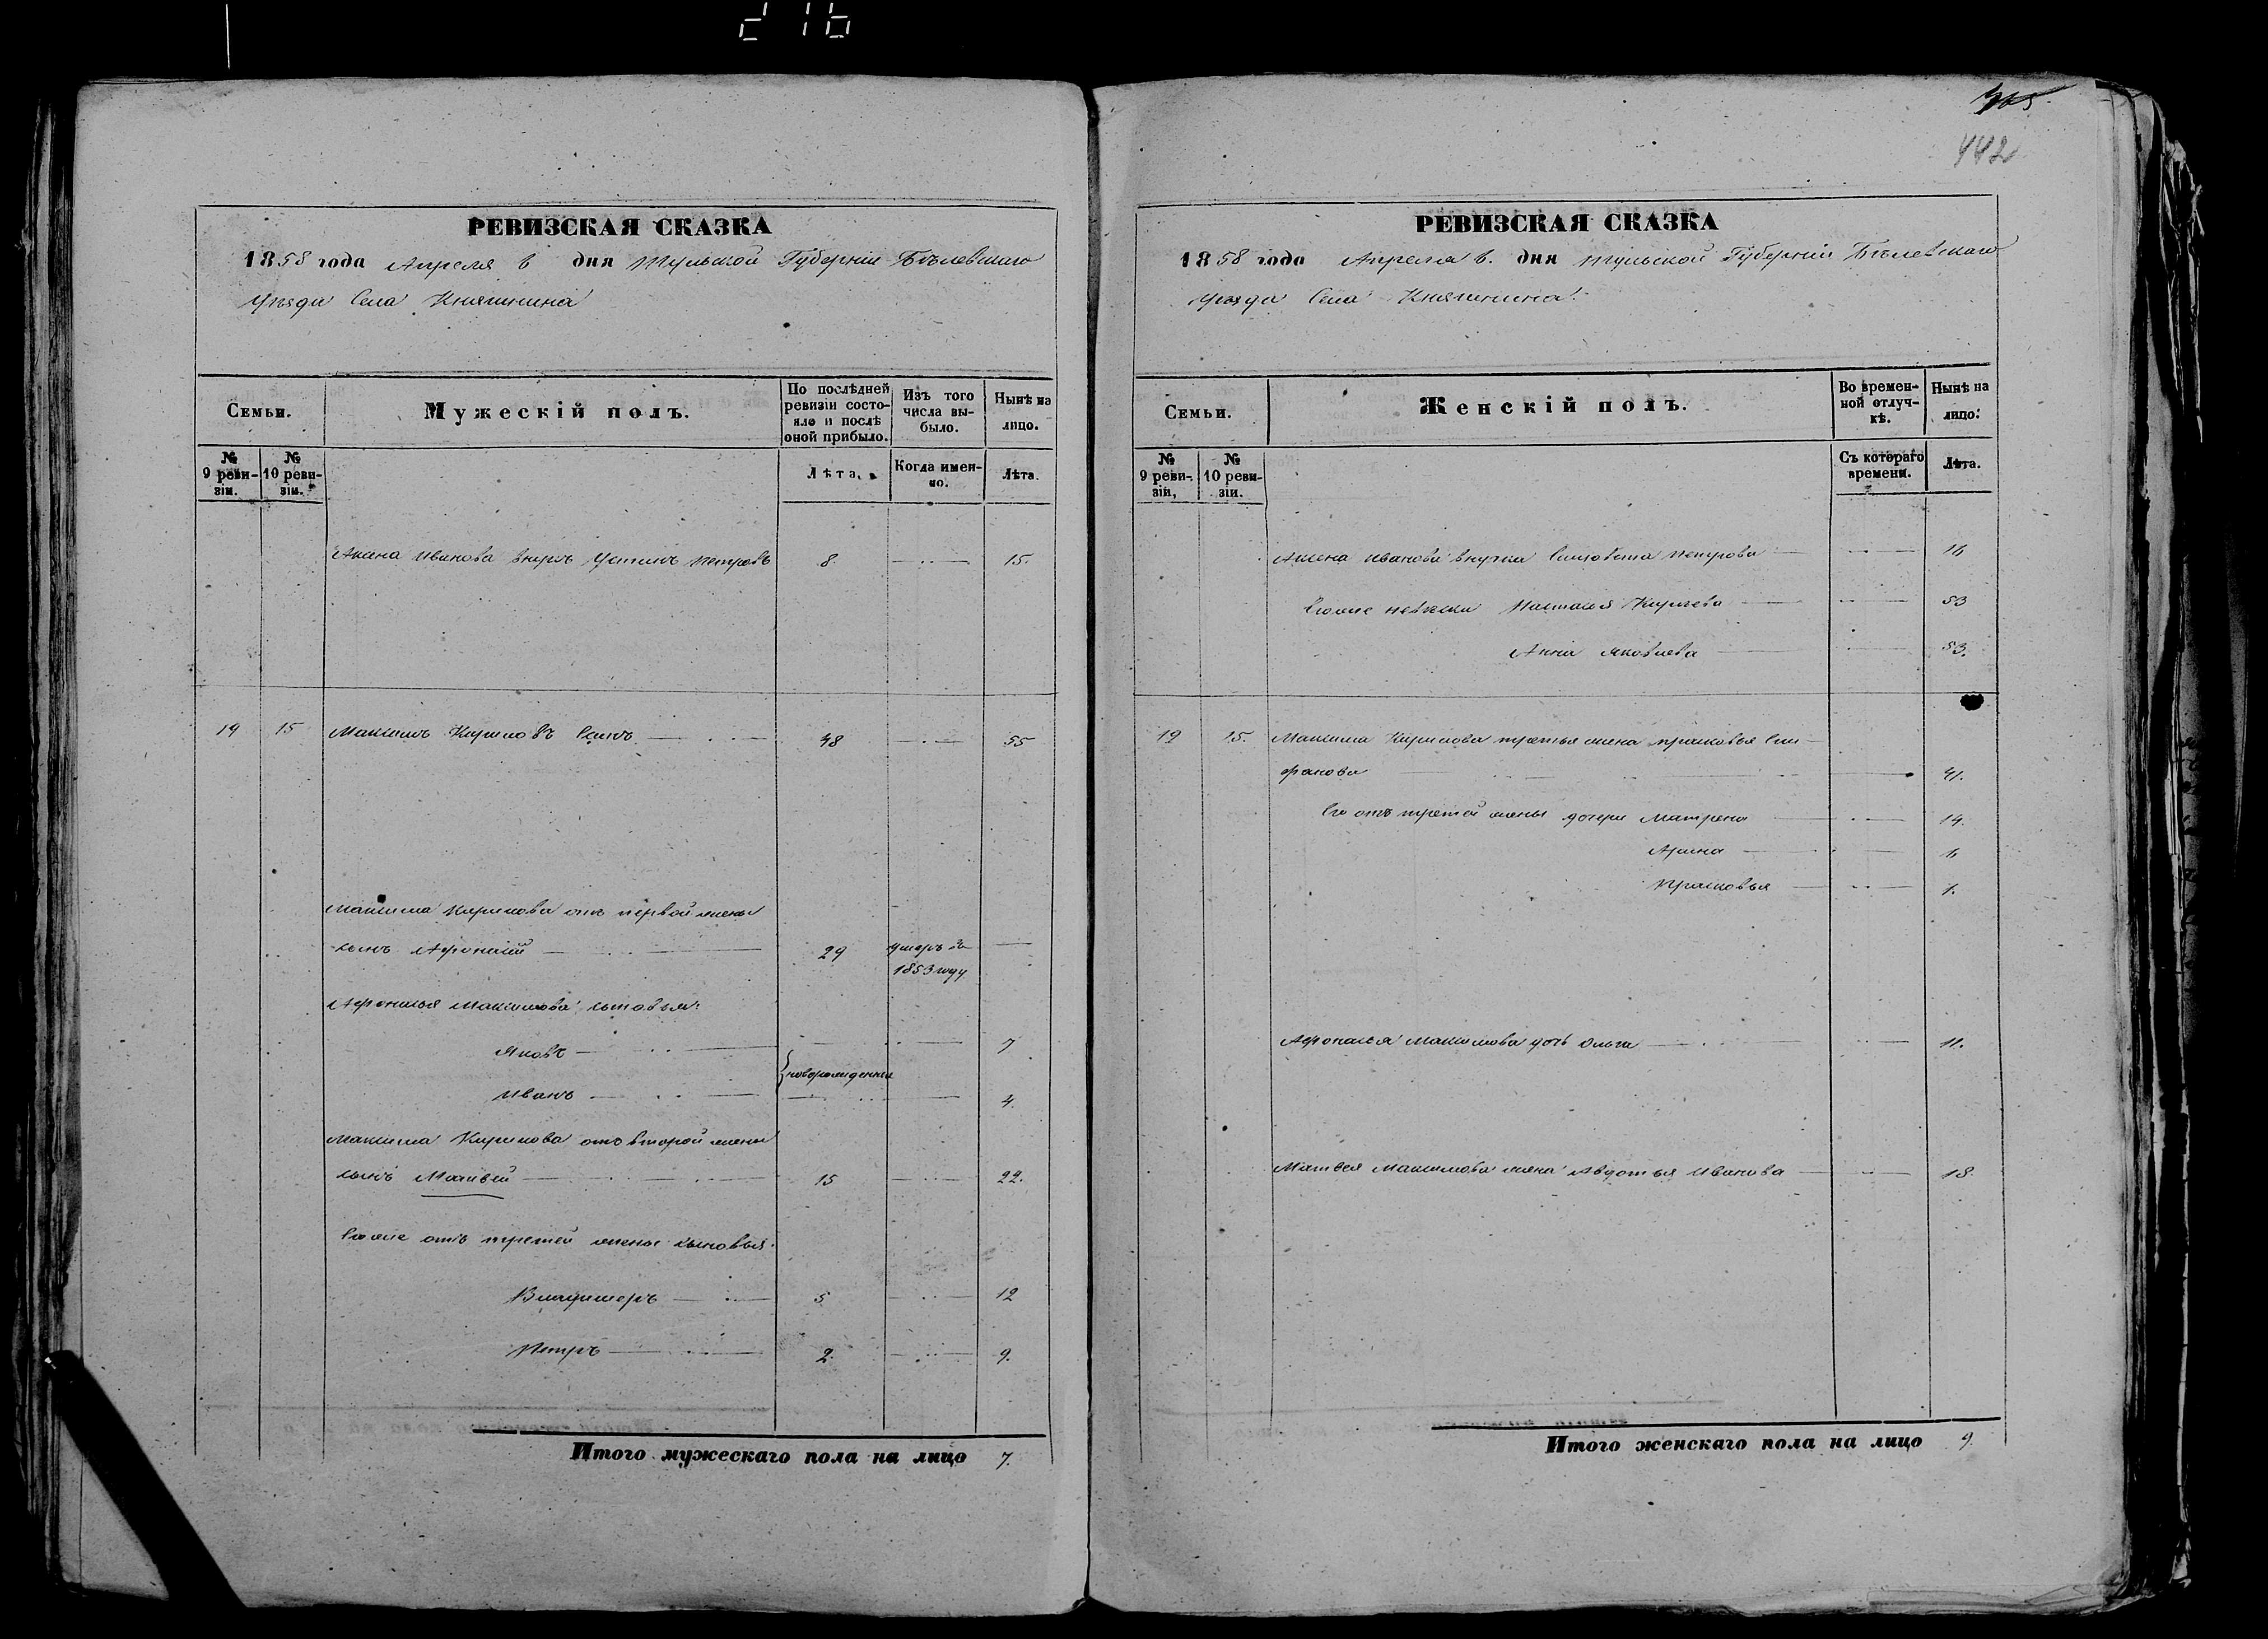 216
РЕВИЗСКАЯ СКАЗКА
1858 года Апреля 6 дня Тульской Губерніи Бѣлевскаго
уѣзда Села Княгинина
Семьи.
Мужескій полъ.
По послѣдней ревизіи состояло и послѣ оной прибыло.
Изъ того числа выбыло.
Нынѣ на лицо.
№ 9 ревизіи.
№ 10 ревизіи.
Лѣта.
Когда именно.
Лѣта.
Иванова внукъ Устинъ Петровъ 8. 15.
19 15 Максимъ Кириловъ 48 55
Максима Кирилова отъ первой жены
сынъ Афонасій 29 умеръ въ 1853 году
Афонасья Максимова сыновья:
Яковъ 7
новорожденные
Иванъ 4.
Максима Кирилова отъ второй жены
сынъ Матвей 15 22.
Его же отъ третей жены сыновья:
Владимеръ 5 12
Петръ 2. 9.
Итого мужескаго пола на лицо 7.
442
РЕВИЗСКАЯ СКАЗКА
1858 года Апреля 6. дня Тульской Губерніи Бѣлевскаго
уѣзда Села Княгинина.
Семьи.
Женскій полъ.
Во временной отлучкѣ.
Нынѣ на лицо.
№ 9 ревизіи.
№ 10 ревизіи.
Съ котораго времени.
Лѣта.
Иванова внучка Елизовета Петрова 16
Его же невестки Наталья 53
Анна Яковлева 53.
19 15. Максима Кирилова третья жена ПрасковьяЕли-
фанова 41.
Его отъ третей жены дочери Матрена 14.
Арина
Прасковья 1.
Афонасья Максимова дочь Ольга 11.
Матвея Максимова жена Авдотья Иванова 18.
Итого женскаго пола на лицо 9.